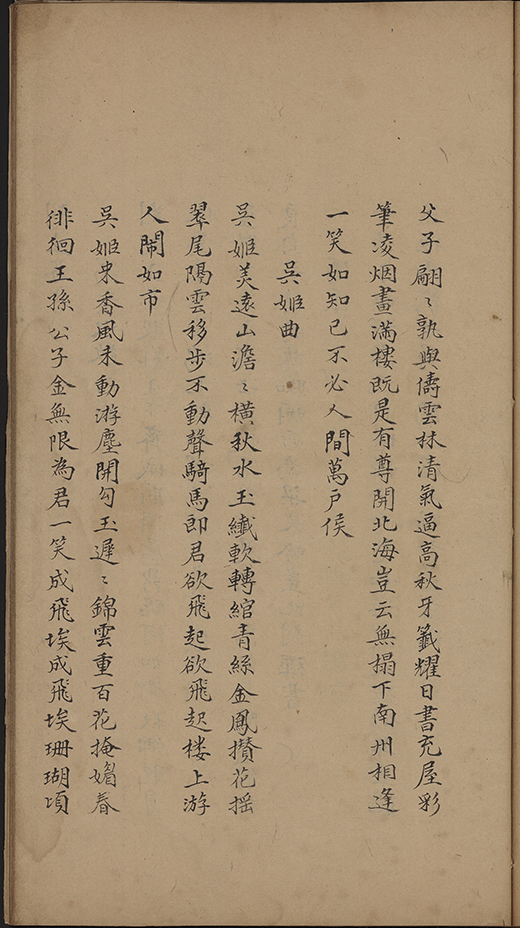 父子翩〻孰與儔雲林清氣逼高秋牙籤耀日書充屋彩
筆凌烟畫滿樓既是有尊開北海豈云無榻下南州相逢
一笑如知己不必人間萬户侯
吳姬曲
吳姬美遠山澹〻橫秋水玉纖軟轉綰青絲金鳳攢花摇
翠尾隔雲移步不動聲騎馬郎君欲飛起欲飛起楼上游
人鬧如市
吳姬来香風未動游塵開勾玉遲〻錦雲重百花掩媚春
徘徊王孫公子金無限為君一笑成飛埃成飛埃珊瑚項